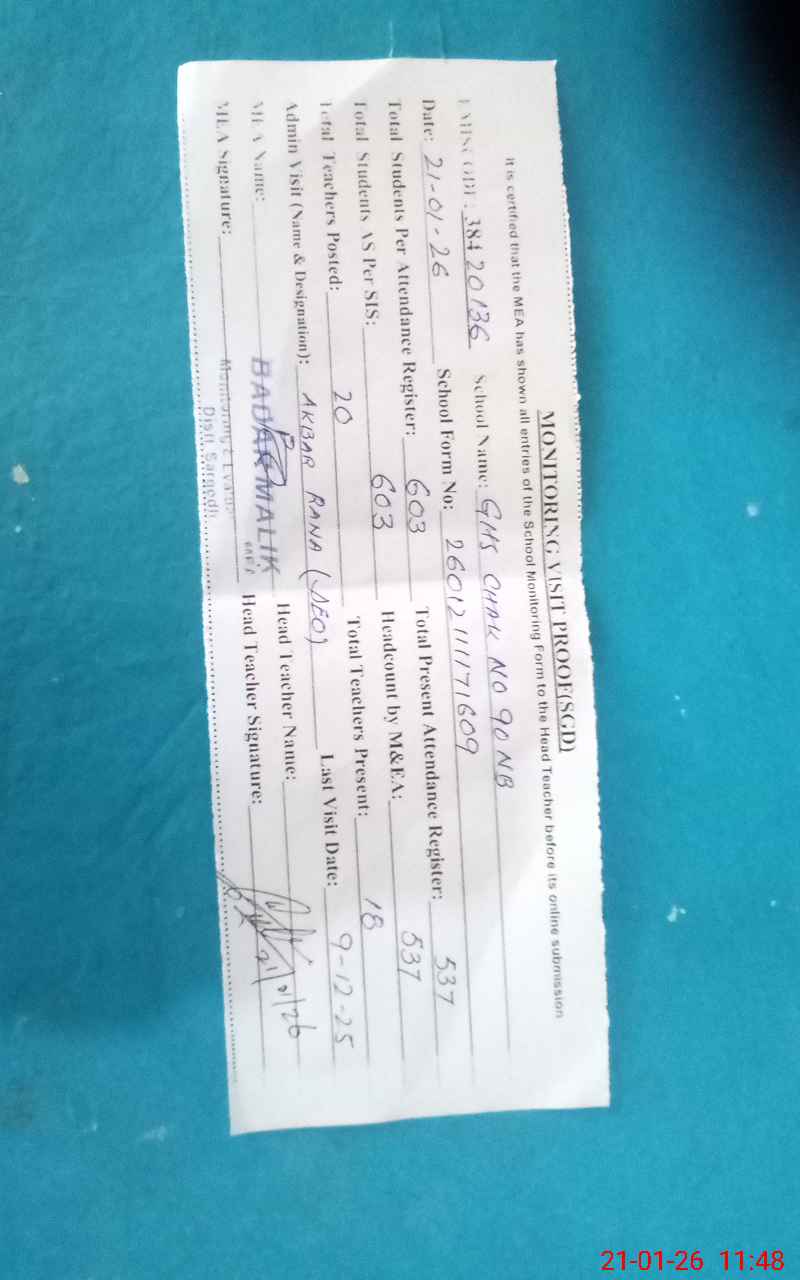 MONITORING VISIT PROOF(SGD)
It is certified that the MEA has shown all entries of the School Monitoring Form to the Head Teacher before its online submission
EMIS CODE: 38420136 School Name: GHS CHAK NO 90 NB
Date: 21-01-26 School Form No: 260121111171609
Total Students Per Attendance Register: 603 Total Present Attendance Register: 537
Total Students AS Per SIS: 603 Headcount by M&EA: 537
Total Teachers Posted: 20 Total Teachers Present: 18
Admin Visit (Name & Designation): AKBAR RANA (AEO) Last Visit Date: 9-12-25
MEA Name: BADAR MALIK Head Teacher Name:
MEA Signature: Head Teacher Signature: 21/01/26
Monitoring & Evalua
Distt. Sargodh
21-01-26 11:48